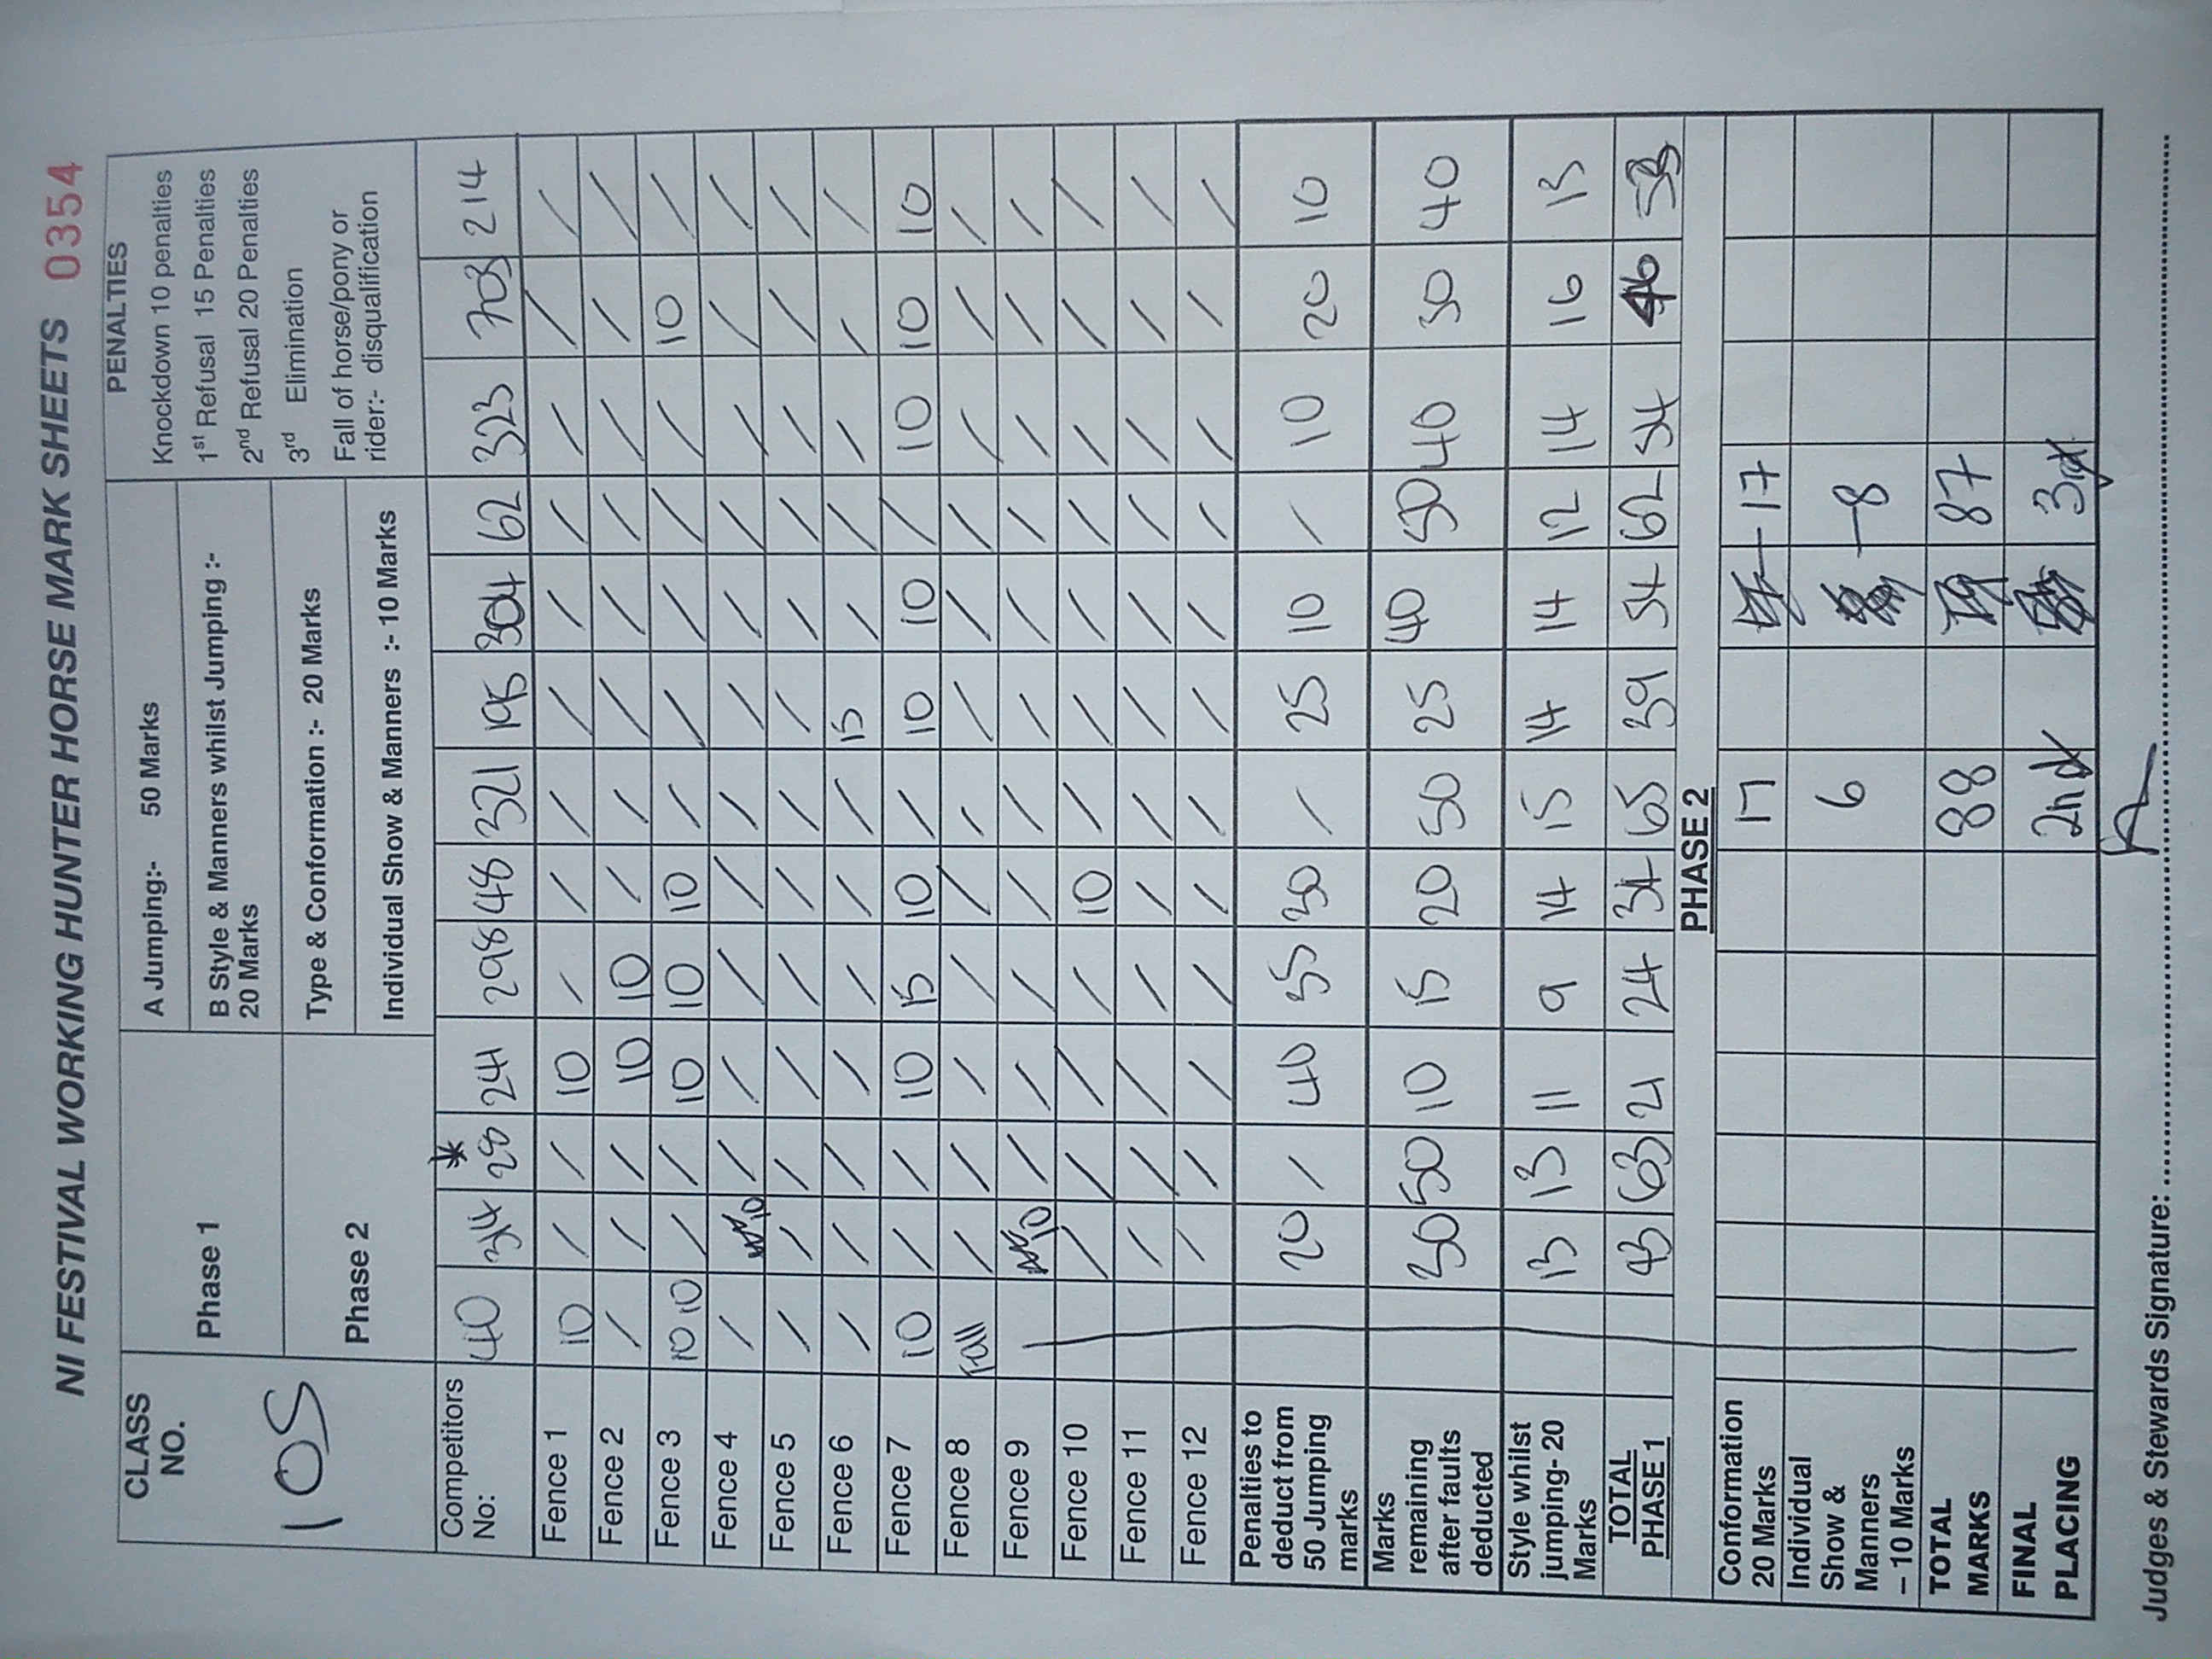 NI FESTIVAL WORKING HUNTER HORSE MARK SHEETS 0354
CLASS NO.
105
Phase 1
A Jumping:- 50 Marks
B Style & Manners whilst Jumping :- 20 Marks
Phase 2
Type & Conformation :- 20 Marks
Individual Show & Manners :- 10 Marks
PENALTIES
Knockdown 10 penalties
1st Refusal 15 Penalties
2nd Refusal 20 Penalties
3rd Elimination
Fall of horse/pony or
rider:- disqualification
Competitors No: 40 314 28 * 241 298 48 321 195 304 62 323 703 214
Fence 1 10 / / 10 / / / / / / / / /
Fence 2 / / / 10 10 / / / / / / / /
Fence 3 10 10 / / 10 10 10 / / / / / 10 /
Fence 4 / 10 / / / / / / / / / / /
Fence 5 / / / / / / / / / / / / /
Fence 6 / / / / / / / 15 / / / / /
Fence 7 10 / / 10 15 10 / 10 10 / 10 10 10
Fence 8 Fall / / / / / / / / / / / /
Fence 9 10 / / / / / / / / / / /
Fence 10 / / / / 10 / / / / / / /
Fence 11 / / / / / / / / / / / /
Fence 12 / / / / / / / / / / / /
Penalties to deduct from 50 Jumping marks 20 / 40 35 30 / 25 10 / 10 20 10
Marks remaining after faults deducted 30 50 10 15 20 50 25 40 50 40 30 40
Style whilst jumping-20 Marks 13 13 11 9 14 15 14 14 12 14 16 13
TOTAL PHASE 1 43 63 21 24 34 65 39 54 62 54 46 53
PHASE 2
Conformation 20 Marks 17 17
Individual Show & Manners – 10 Marks 6 8
TOTAL MARKS 88 87
FINAL PLACING 2nd 3rd
Judges & Stewards Signature: